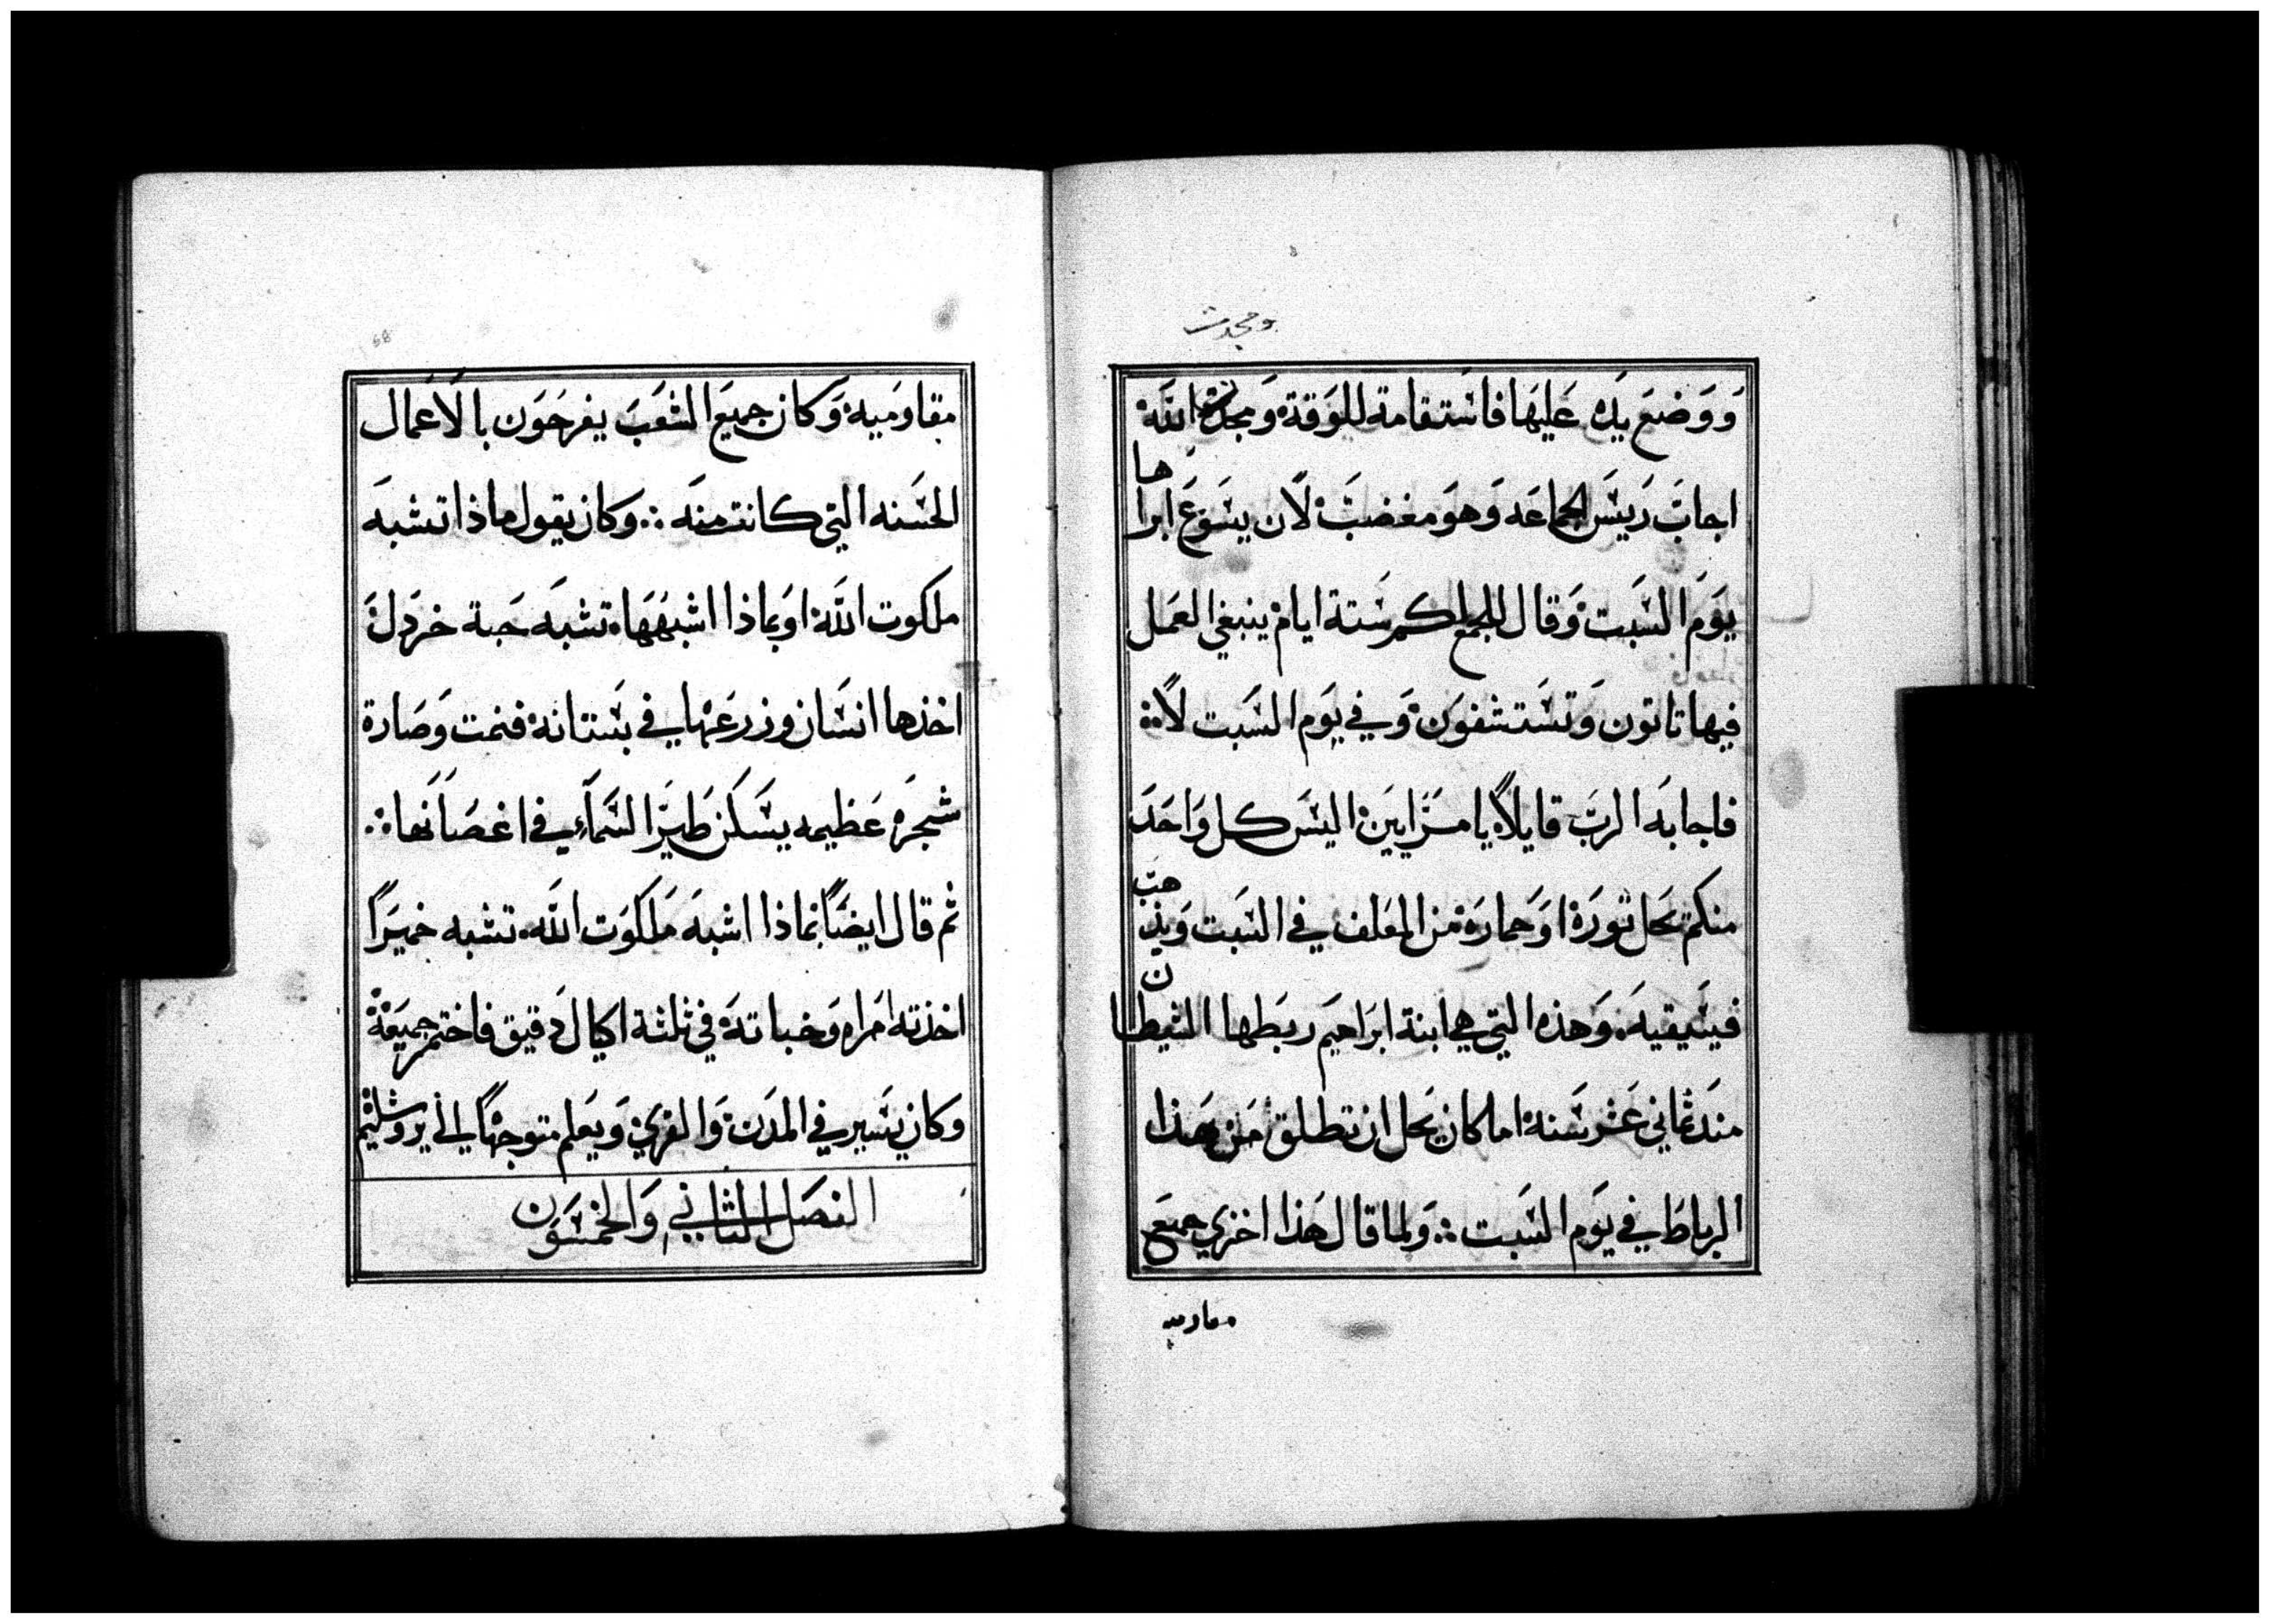 ومجدت
وَوَضعَ يدَه عَليهَا فاسَتقامة للوَقة وَمجدة اللّه
اجابَ رَييسَ الجماعَه وَهوَ مغضبَ لاَن يسَوَع ابراها
يوَمَ السَبت وَقال للجمع لكم ستة ايام ينبغي العمَل
فيها تاتون وَتسَتشفوَن وَفي يوَم السَبت لاً
فاجابَه الربَ قايلاً يا مرَايينَ اليسَ كل وَاحدَ
منكم يحَل ثورَه اوَ حمارَه من المعَلف في السَبت وَيذهبَ
فيسَقيهَ وَهذه التي هي ابنة ابرَاهيَم ربَطها الشيطان
منَد ثماني عَشر سَنه اما كان يحَل ان تطلق مَن هَذا
الرباطَ في يوَم السَبت وَلما قال هَذا اخزي جميعَ
مقاوميه
68
مقاومَيه وَكان جميعَ الشعَبَ يفرحَوَن بالاَعمال
الحسَنه التي كانت منهَ وكان يقول ماذا تشبهَ
ملكوت اللّه اوَ بماذا اشبهَهَا تشبهَ حَبة خردَل
اخذها انسَان وزرعَها في بسَتانه فنمت وَصَارة
شجرَه عَظيمه يسَكن طيَر السَماَء في اغصَانَها
ثم قال ايضَاً بماذا اشبهَ مَلكوَت اللّه تشبه خميرَاً
اخذته امَراه وَخباتهَ في ثلثة اكيال دَقيق فاختمر جميَعَه
وكان يسَير في المدَن وَالقري وَيعَلم متوجهَاً الي يروشليم
الفصَل الثاني وَالخمسَوَن